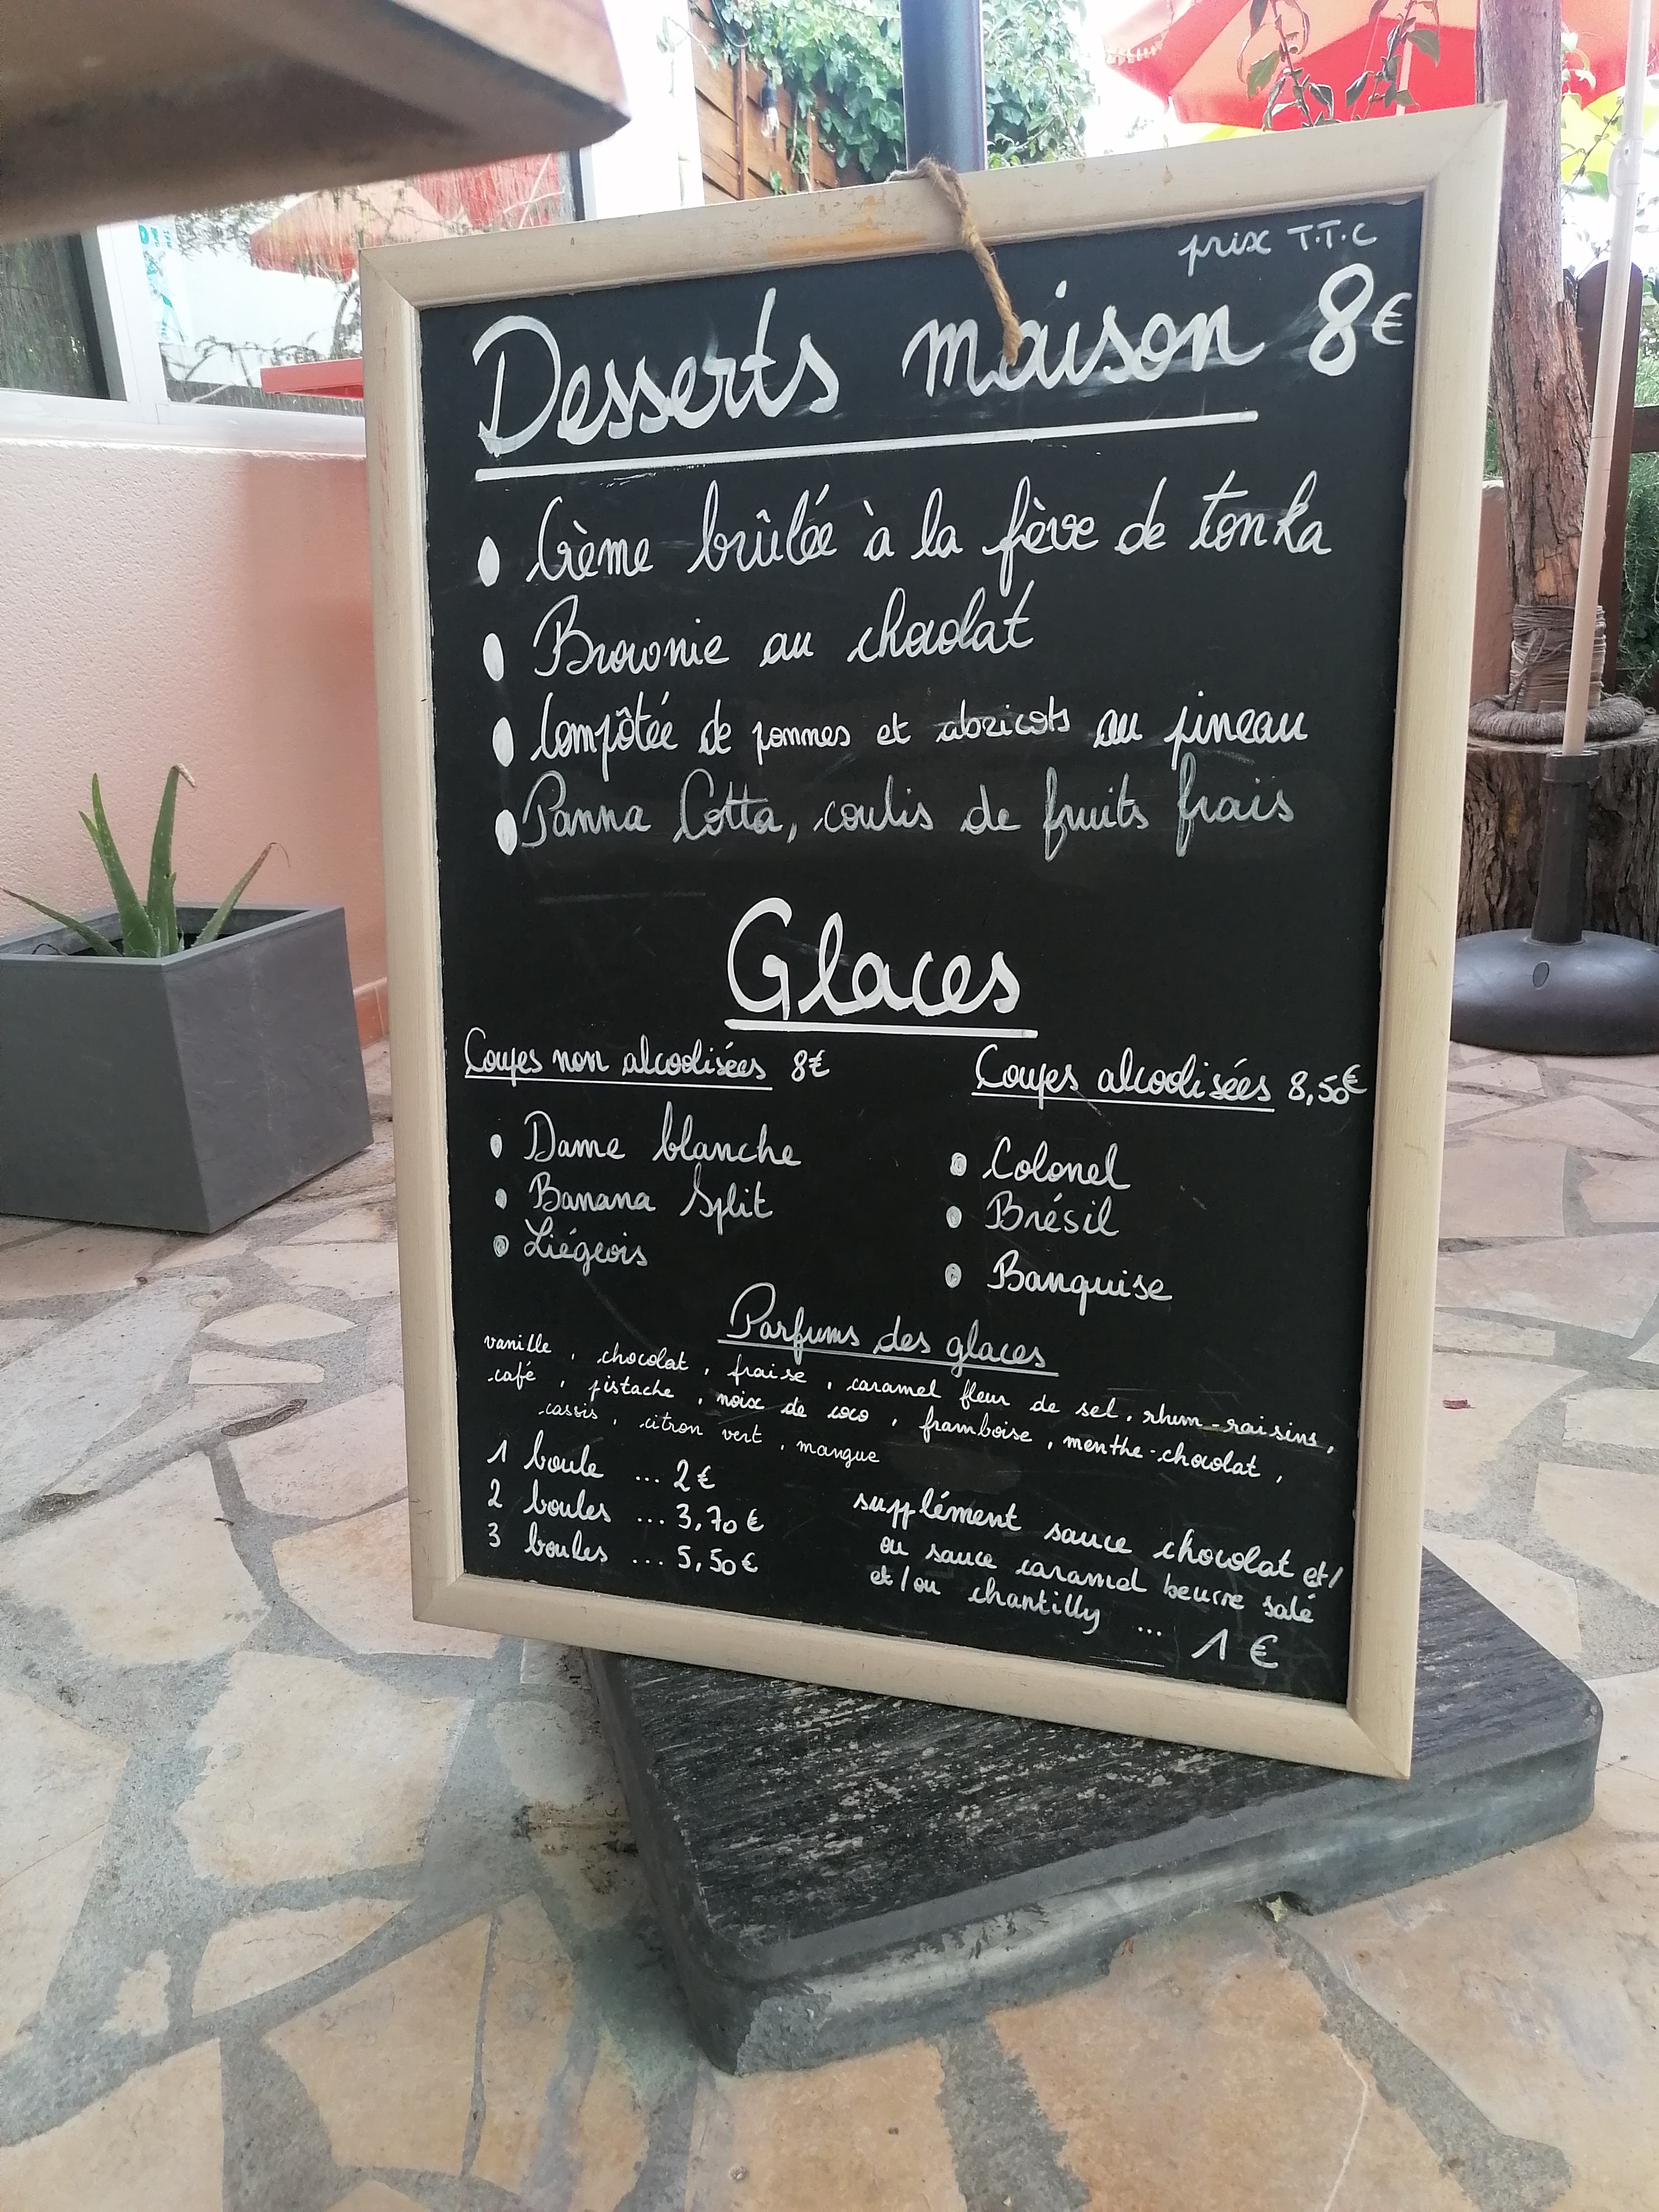 prix T.T.C
Desserts maison 8€
• Crème brûlée à la fève de tonka
• Brownie au chocolat
• Compôtée de pommes et abricots au pineau
• Panna Cotta, coulis de fruits frais
Glaces
Coupes non alcoolisées 8€
• Dame blanche
• Banana Split
• Liégeois
Coupes alcoolisées 8,50€
• Colonel
• Brésil
• Banquise
Parfums des glaces
vanille, chocolat, fraise, caramel fleur de sel, rhum-raisins,
café, pistache, noix de coco, framboise, menthe-chocolat,
cassis, citron vert, mangue
1 boule ... 2€
2 boules ... 3,70€
3 boules ... 5,50€
supplément sauce chocolat et/
ou sauce caramel beurre salé
et/ou chantilly ... 1€